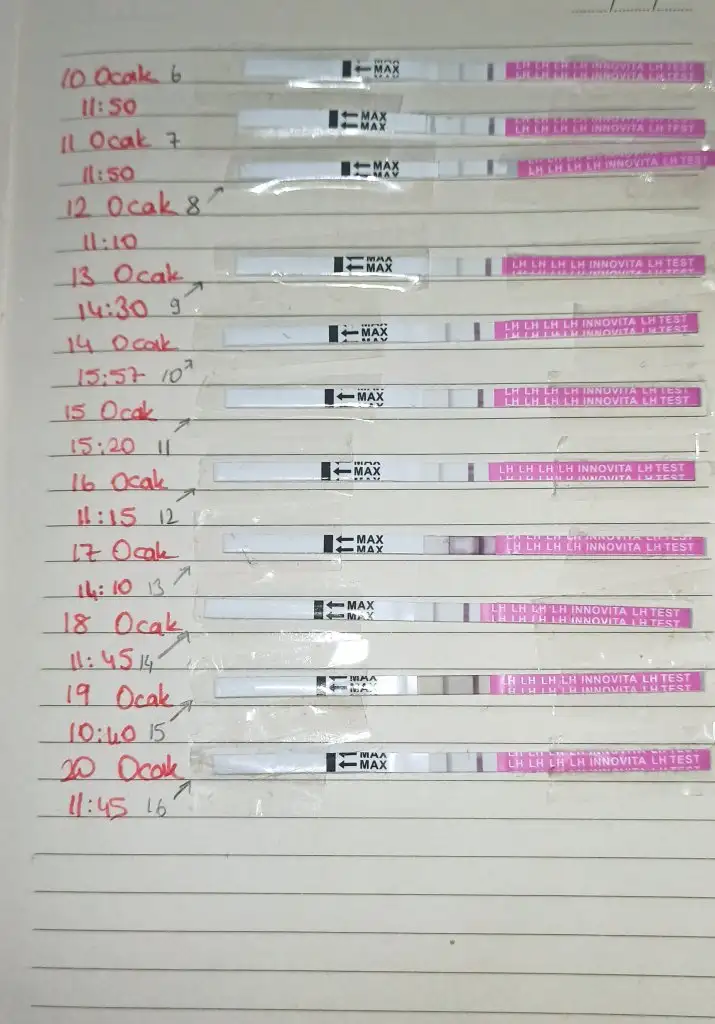 10 Ocak 6
MAX
MAX
LH LH LH LH INNOVITA LH TEST
11:50
MAX
MAX
LH LH LH LH INNOVITA LH TEST
11 Ocak 7
11:50
MAX
MAX
LH LH LH LH INNOVITA LH TEST
12 Ocak 8
11:10
MAX
MAX
LH LH LH LH INNOVITA LH TEST
13 Ocak
14:30 9
MAX
MAX
LH LH LH LH INNOVITA LH TEST
14 Ocak
15:57 10
MAX
LH LH LH LH INNOVITA LH TEST
15 Ocak
15:20 11
MAX
MAX
LH LH LH LH INNOVITA LH TEST
16 Ocak
11:15 12
MAX
MAX
LH LH LH LH INNOVITA LH TEST
17 Ocak
14:10 13
MAX
MAX
LH LH LH LH INNOVITA LH TEST
18 Ocak
11:45 14
MAX
MAX
LH LH LH LH INNOVITA LH TEST
19 Ocak
10:40 15
MAX
MAX
LH LH LH LH INNOVITA LH TEST
20 Ocak
11:45 16